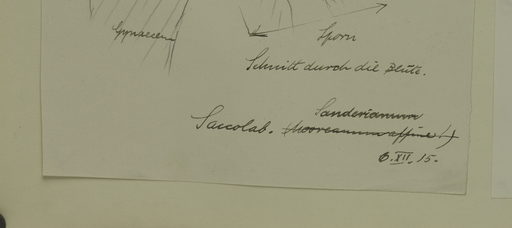 Gynaeceum Sporn
Schnitt durch die Blüte.
Sanderianum
Saccolab. (Mooreanum affine!)
6. XII. 15.